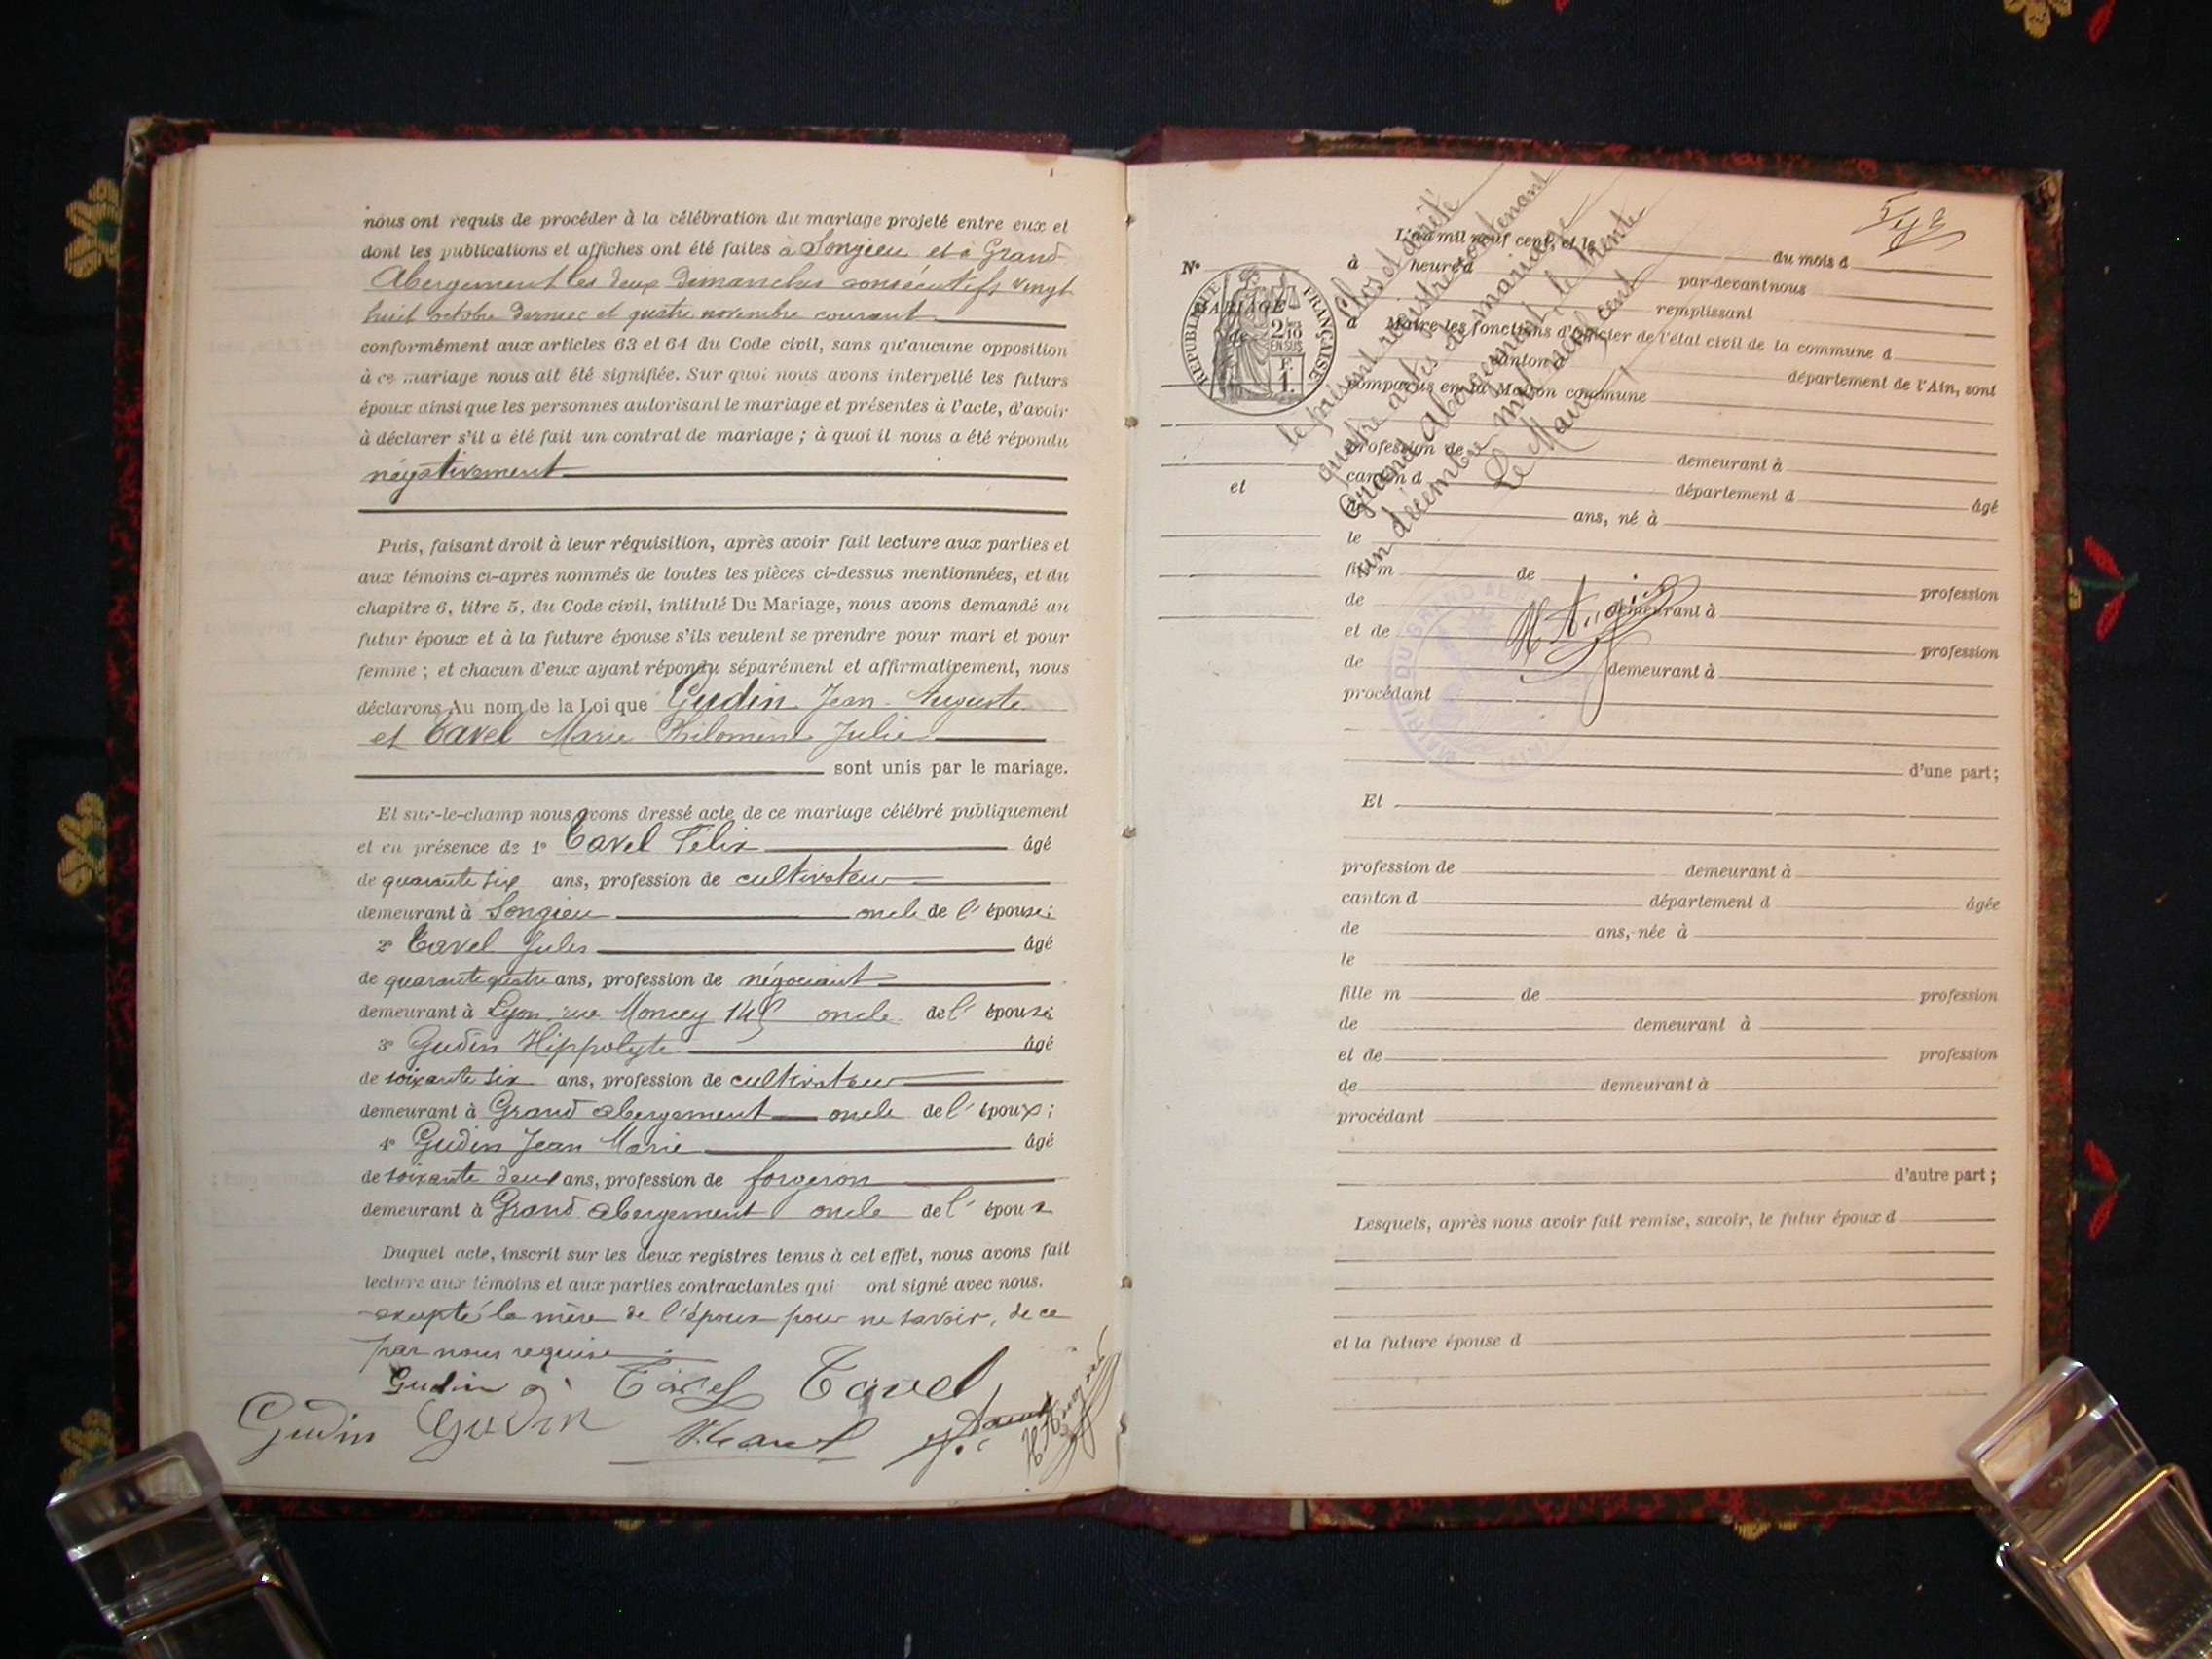 nous ont requis de procéder à la célébration du mariage projeté entre eux et
dont les publications et affiches ont été faites à Songieu et à Grand
Abergement les deux Dimanches consécutifs vingt
huit octobre dernier et quatre novembre courant
conformément aux articles 63 et 64 du Code civil, sans qu'aucune opposition
à ce mariage nous ait été signifiée. Sur quoi nous avons interpellé les futurs
époux ainsi que les personnes autorisant le mariage et présentes à l'acte, d'avoir
à déclarer s'il a été fait un contrat de mariage ; à quoi il nous a été répondu
négativement
Puis, faisant droit à leur réquisition, après avoir fait lecture aux parties et
aux témoins ci-après nommés de toutes les pièces ci-dessus mentionnées, et du
chapitre 6, titre 5, du Code civil, intitulé Du Mariage, nous avons demandé au
futur époux et à la future épouse s'ils veulent se prendre pour mari et pour
femme ; et chacun d'eux ayant répondu séparément et affirmativement, nous
déclarons Au nom de la Loi que Gudin Jean Auguste
et Tavel Marie Philomène Julie
sont unis par le mariage.
Et sur-le-champ nous avons dressé acte de ce mariage célébré publiquement
et en présence de 1° Tavel Félix âgé
de quarante six ans, profession de cultivateur
demeurant à Songieu oncle de l'épouse;
2° Tavel Jules âgé
de quarante quatre ans, profession de négociant
demeurant à Lyon, rue Moncey oncle de l'épouse;
3° Gudin Hippolyte âgé
de soixante six ans, profession de cultivateur
demeurant à Grand abergement oncle de l'époux;
4° Gudin Jean Marie âgé
de soixante deux ans, profession de forgeron
demeurant à Grand abergement oncle de l'époux
Duquel acte, inscrit sur les deux registres tenus à cet effet, nous avons fait
lecture aux témoins et aux parties contractantes qui ont signé avec nous.
excepté la mère de l'époux pour ne savoir, de ce
par nous requise
Gudin Tavel Tavel
Gudin Gudin
N°
MARIAGE
de
et
RÉPUBLIQUE FRANÇAISE
2/10 EN SUS
F. 1.
L'an mil neuf cent, et le du mois d
à heure d par-devant nous
remplissant
d Maire les fonctions d'officier de l'état civil de la commune d
canton d département de l'Ain, sont
comparus en la Maison commune
profession de demeurant à
canton d département d âgé
de ans, né à
le
fils m de profession
de demeurant à
et de profession
de demeurant à
procédant
d'une part;
Clos et arrêté
le présent registre contenant
quatre actes de mariage
Grand Abergement le trente
un décembre mil neuf cent
Le Maire
MAIRIE DU GRAND AB
Et
profession de demeurant à
canton d département d âgée
de ans, née à
le
fille m de profession
de demeurant à
et de profession
de demeurant à
procédant
d'autre part ;
Lesquels, après nous avoir fait remise, savoir, le futur époux d
et la future épouse d